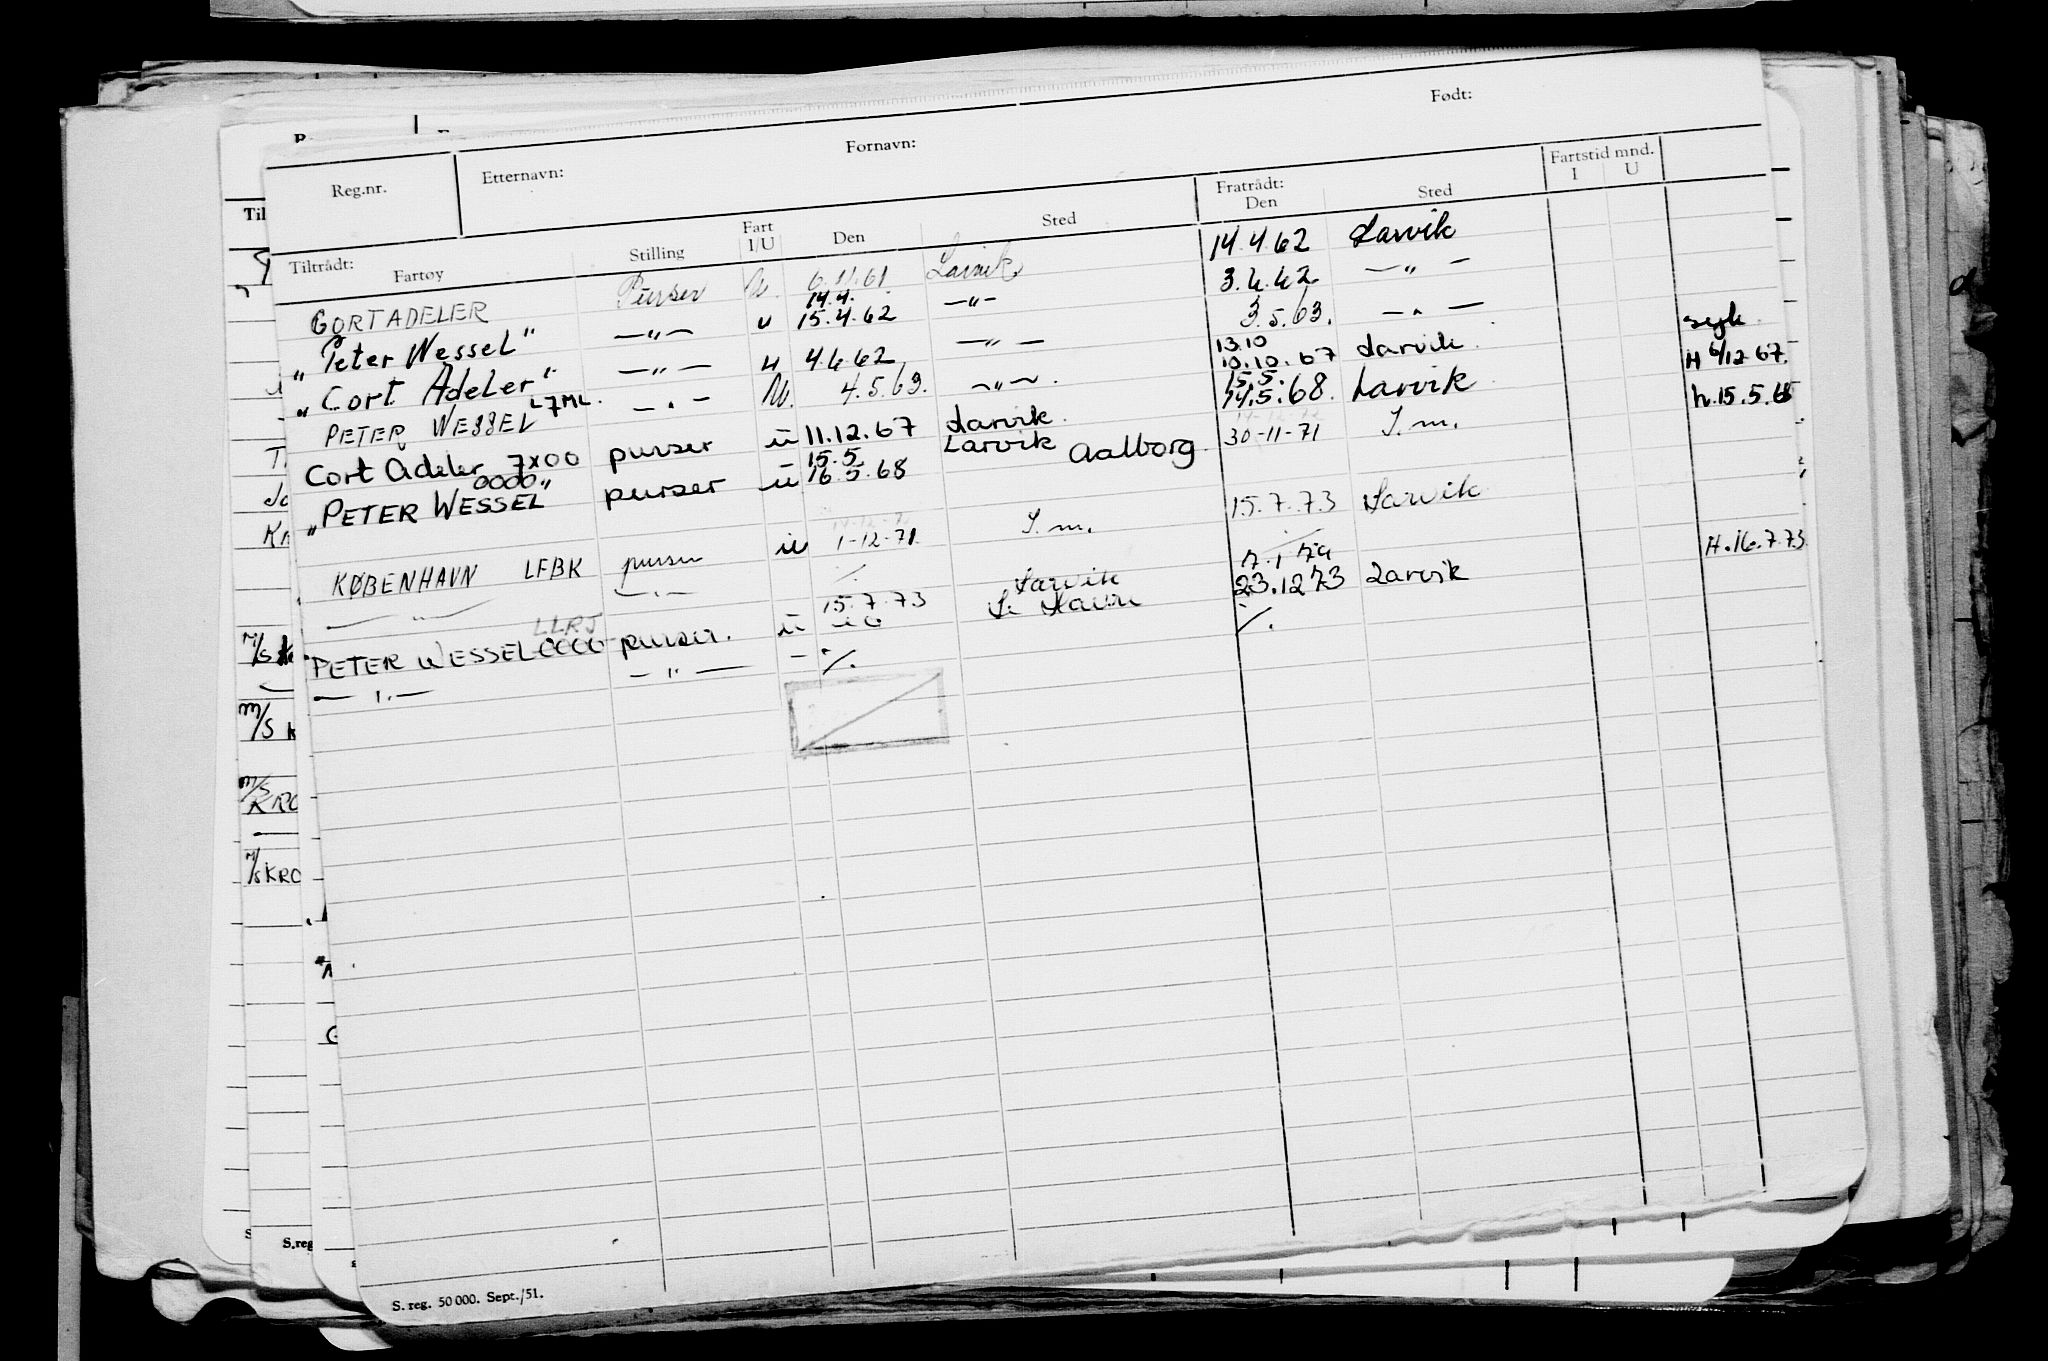 Reg.nr. Etternavn: Fornavn: Født:
Tiltrådt: Fartøy Stilling Fart I/U Den Sted Fratrådt: Den Sted Fartstid mnd. I U
CORT ADELER Purser U. 6.11.61 Larvik 14.4.62 Larvik
14.4.
"Peter Wessel" —"— u 15.4.62 —"— 3.6.62 —"—
"Cort Adeler" —"— u 4.6.62 —"— 3.5.63. —"—
13.10 syk
PETER WESSEL L7ML. —"— U. 4.5.63. —"—. 10.10.67 Larvik. H 6/12 67.
15.5.
Cort Adeler 7X00 purser u 11.12.67 Larvik. 14.5.68. Larvik h.15.5.68
0000 15.5 Larvik
"PETER WESSEL" purser u 16.5.68 Aalborg 30-11-71 S.m.
KØBENHAVN LFBK purser u 1-12-71 S.m. 15.7.73 Larvik
—"— —"— ./. 7.1 74
LLRJ 15.7.73 Larvik
PETER WESSEL 0000 purser. u Le Havre 23.12.73 Larvik H.16.7.73
—"— —"— — ./. ./.
S. reg. 50 000. Sept./51.
Til
M/S
M/S K
M/S
KRO
M/S KRO
S.reg